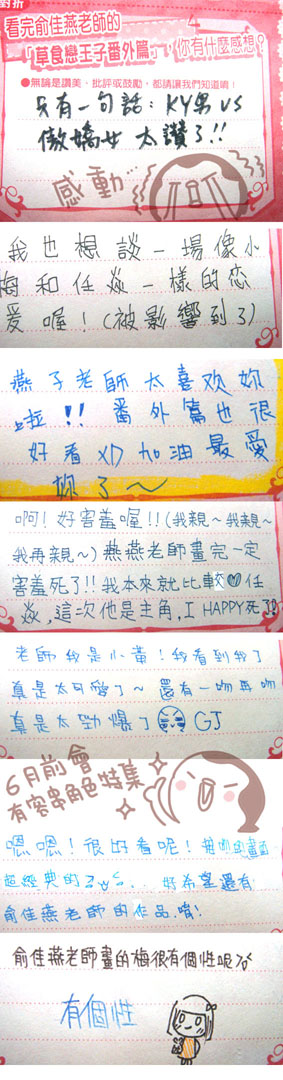 對折
看完俞佳燕老師的
「草食戀王子番外篇」，你有什麼感想？
●無論是讚美、批評或鼓勵，都請讓我們知道唷！
只有一句話：KY男VS
傲嬌女 太讚了!!
感動…
我也想談一場像小
梅和任焱一樣的恋
爱喔！(被影響到了)
燕子老師太喜欢妳
啦!!番外篇也很
好看XD加油最愛
妳了～
啊！好害羞喔!!(我親～我親～
我再親～)燕燕老師畫完一定
害羞死了!!我本來就比較♡任
焱,這次他是主角,I HAPPY死了
老師我是小黃！我看到我了
真是太可愛了～還有一吻再吻
真是太勁爆了 GJ
6月前會
有客串角色特集
嗯嗯！很好看呢！
超經典的 好希望還有
俞佳燕老師的作品,唷!
俞佳燕老師畫的梅很有個性呢
有個性